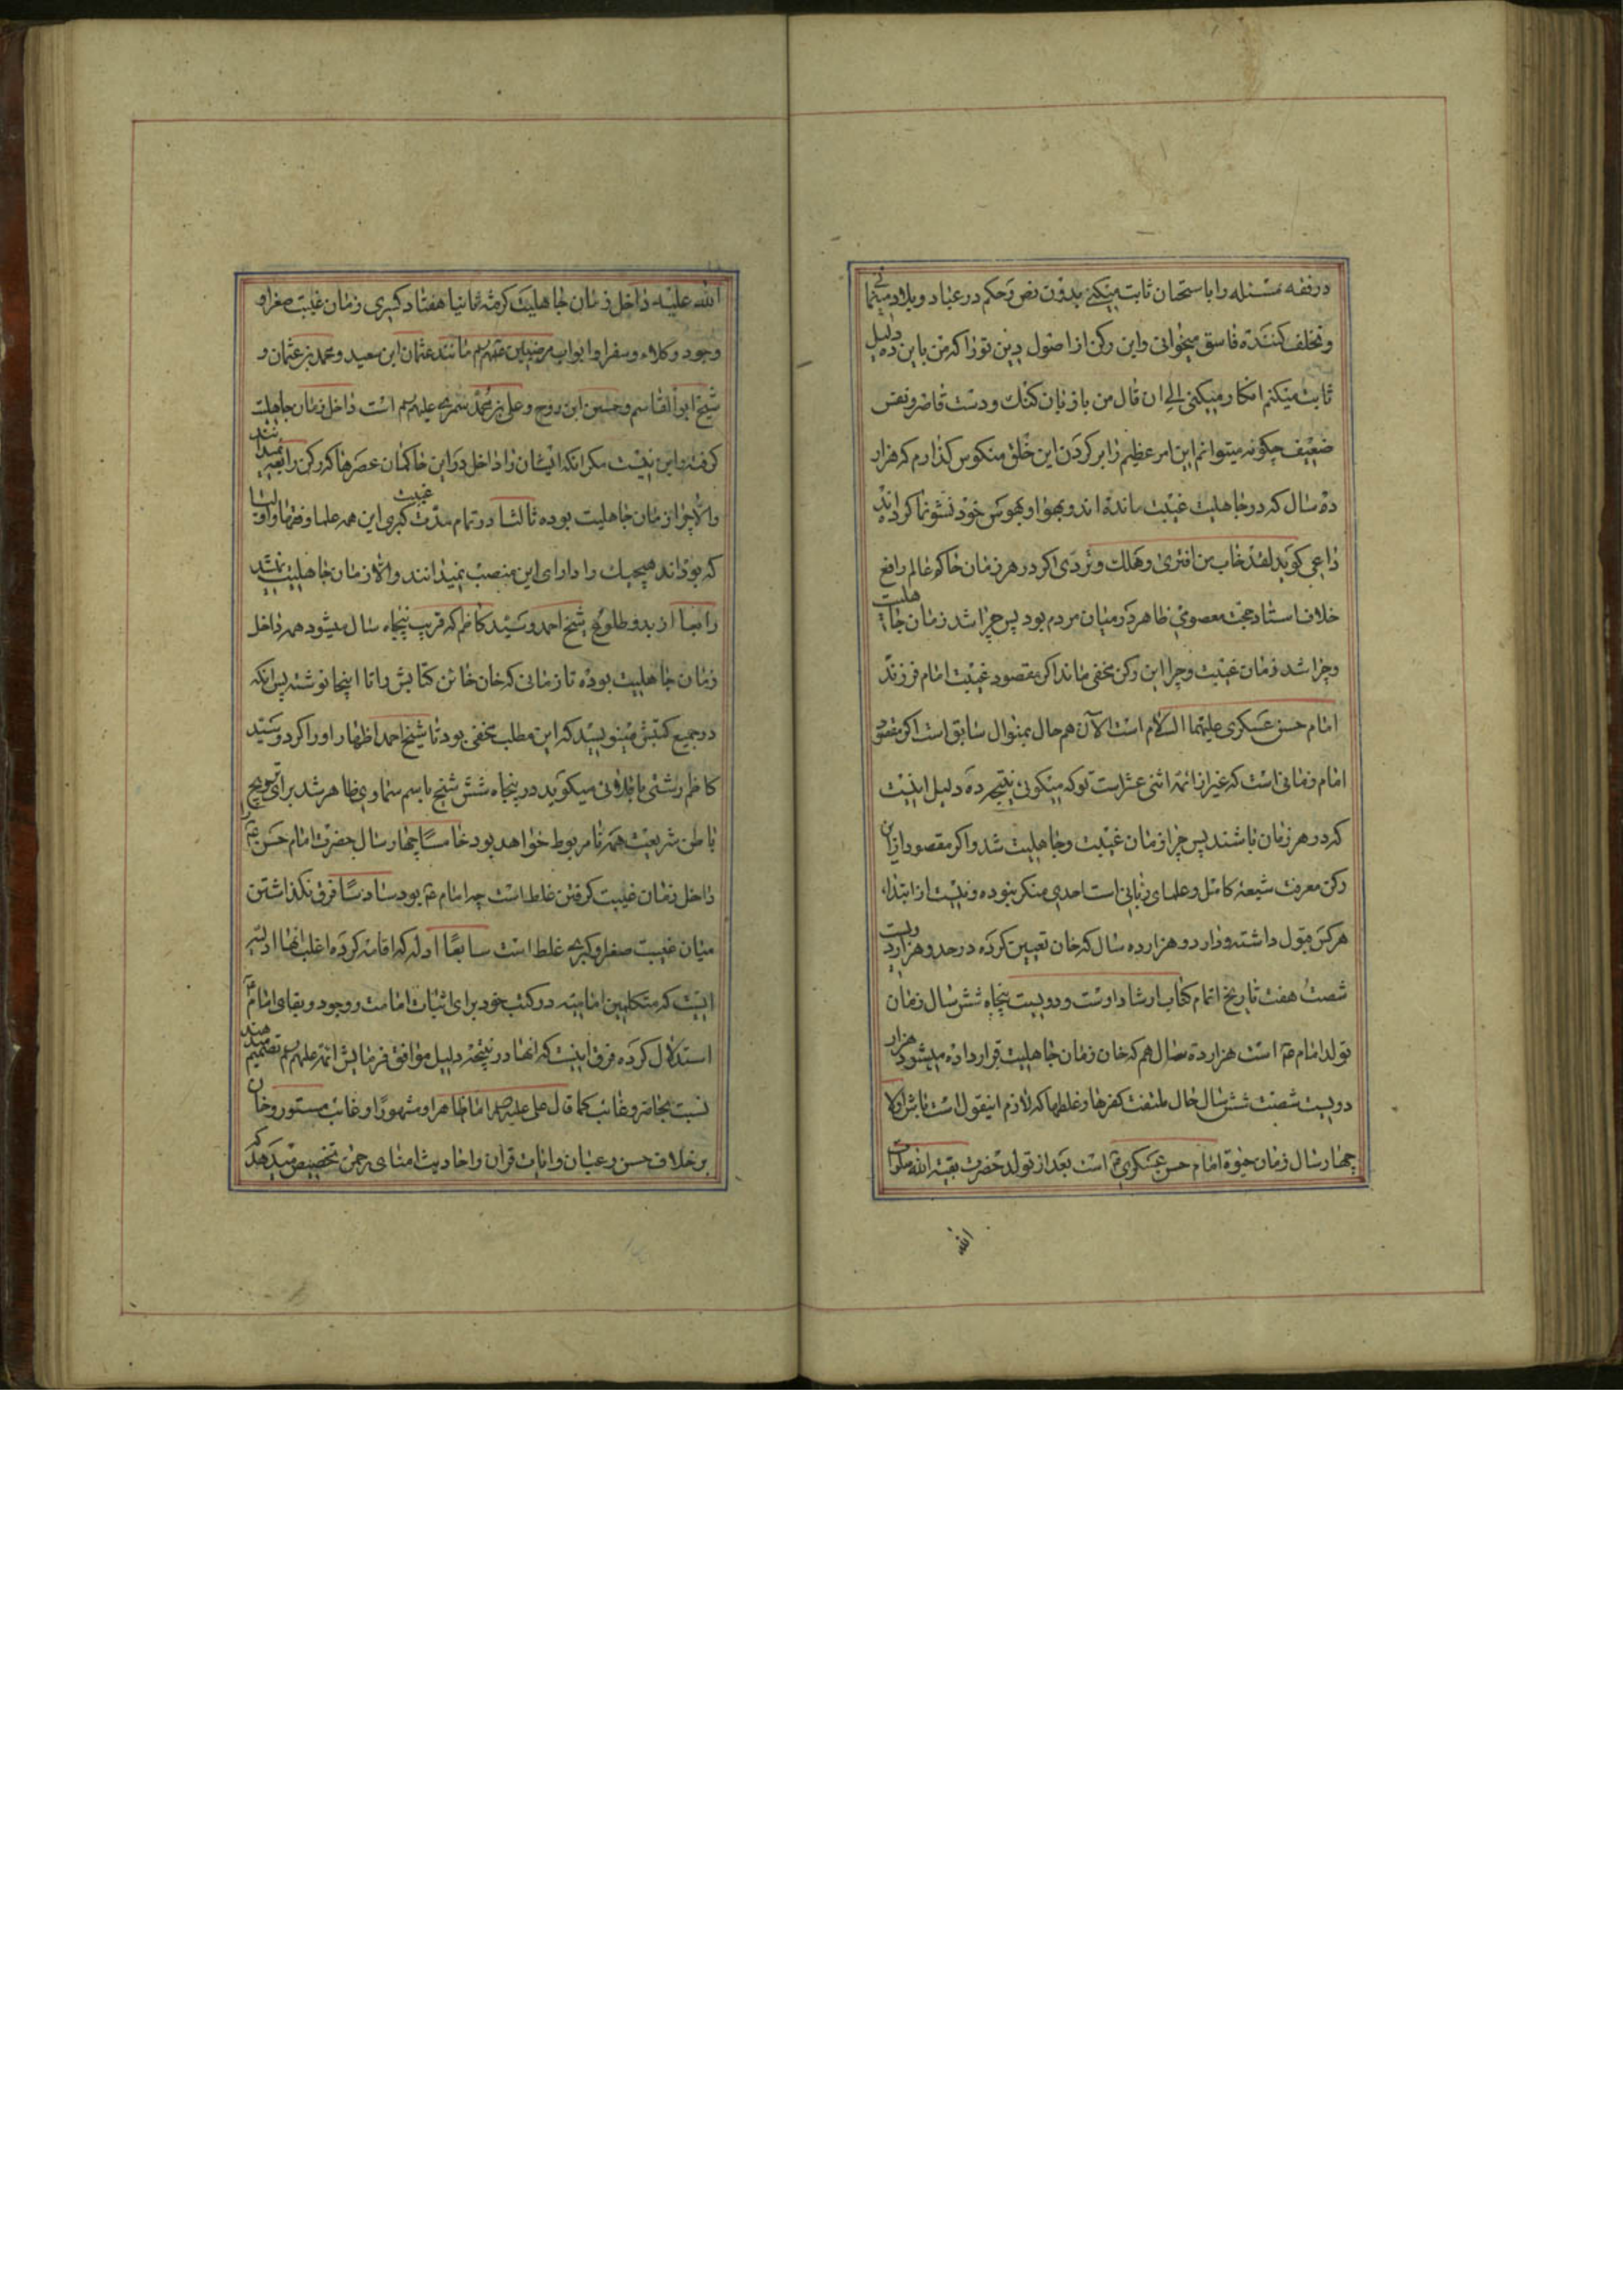 در فقه مسئله را باستحسان ثابت میکنی بدون نص و حکم در عباد و بلاد مینمائی
و تخلف کننده فاسق میخوانی و این رکن از اصول دین تو را که من باین ده دلیل
ثابت میکنم انکار میکنی الی ان قال من با زبان کنک و دست قاصر و نفس
ضعیف چکونه میتوانم این امر عظیم را بر کردن این خلق منکوس کذارم که هزار
ده سال که در جاهلیت غیبت مانده اند و بهوا و بهوس خود نشو نما کرده اند
داعی کوید لقد خاب من افتری و هلک و تردی اکر در هر زمان حاکم عالم رافع
خلاف استاد حجت معصومی ظاهر در میان مردم بود پس چرا شد زمان جاهلیت
و چرا شد زمان غیبت و چرا این رکن مخفی ماند اکر مقصود غیبت امام فرزند
امام حسن عسکری علیهما السلام است الآن هم حال بمنوال سابق است اکر مقصود
امام زمانی است که غیر از ائمه اثنی عشر است تو که میکوئی نتیجه ده دلیل اینست
که در هر زمان باشند پس چرا زمان غیبت و جاهلیت شد و اکر مقصود از این
رکن معرفت شیعه کامل و علمای ربانی است احدی منکر نبوده و نیست از ابتداء
هر کس قبول داشته و دارد و هزار ده سال که خان تعیین کرده در حدود هزار دویست
شصت هفت تاریخ اتمام کتاب ارشاد اوست و دویست پنجاه شش سال زمان
تولد امام ع است هزار ده سال هم که خان زمان جاهلیت قرار داده میشود هزار
دویست شصت شش سال حال ملتفت کفرها و غلطها که لازم اینقول است باش اولا
چهار سال زمان حیوة امام حسن عسکری ع است بعد از تولد حضرت بقیة الله صلوات
الله
الله علیه داخل زمان جاهلیت کرفته ثانیا هفتاد کسری زمان غیبت صغرا و
وجود وکلاء و سفرا و ابواب مرضیین مانند عثمان ابن سعید و محمد بن عثمان و
شیخ ابو القاسم و حسین ابن روح و علی بن محمد سمری علیهم است داخل زمان جاهلیت
کرفته و این نیست مکر انکه ایشان را داخل در این حاکمان عصرها که رکن رابعند نمیداند
والا چرا زمان جاهلیت بوده ثالثا در تمام مدت غیبت کبری این همه علما و فقها و اولیا
که بوده اند هیچیک را دارای این منصب نمیدانند والا زمان جاهلیت نباشد
رابعا از بدو طلوع شیخ احمد و سید کاظم که قریب پنجاه سال میشود همه داخل
زمان جاهلیت بوده تا زمانی که خان خائن کتابش را تا اینجا نوشته پس انکه
در جمیع کتبش مینویسد که این مطلب مخفی بود تا شیخ احمد اظهار او را کرد و سید
کاظم رشتی میکوید در پنجاه شش شیخ باسم سماوی ظاهر شد برای ترویج
باطن شریعت همه نامربوط خواهد بود خامسا چهار سال حضرت امام حسن ع را
داخل زمان غیبت کرفتن غلط است چه امام ع بود سادسا فرق نکذاشتن
میان غیبت صغرا و کبری غلط است سابعا ادله که اقامه کرده اغلب انها ادله
ایست که متکلمین امامیه در کتب خود برای اثبات امامت و وجود و بقای امام ع
استدلال کرده فرق اینست که انها در نتیجه دلیل موافق فرمایش ائمه علیهم تعمیم میدهند
نسبت بحاضر و غائب کما قال علی علیه اما ظاهرا و مشهورا و غائب مستور و خان
بر خلاف حس و عیان و ایات قران و احادیث امنای رحمن تخصیص میدهد که